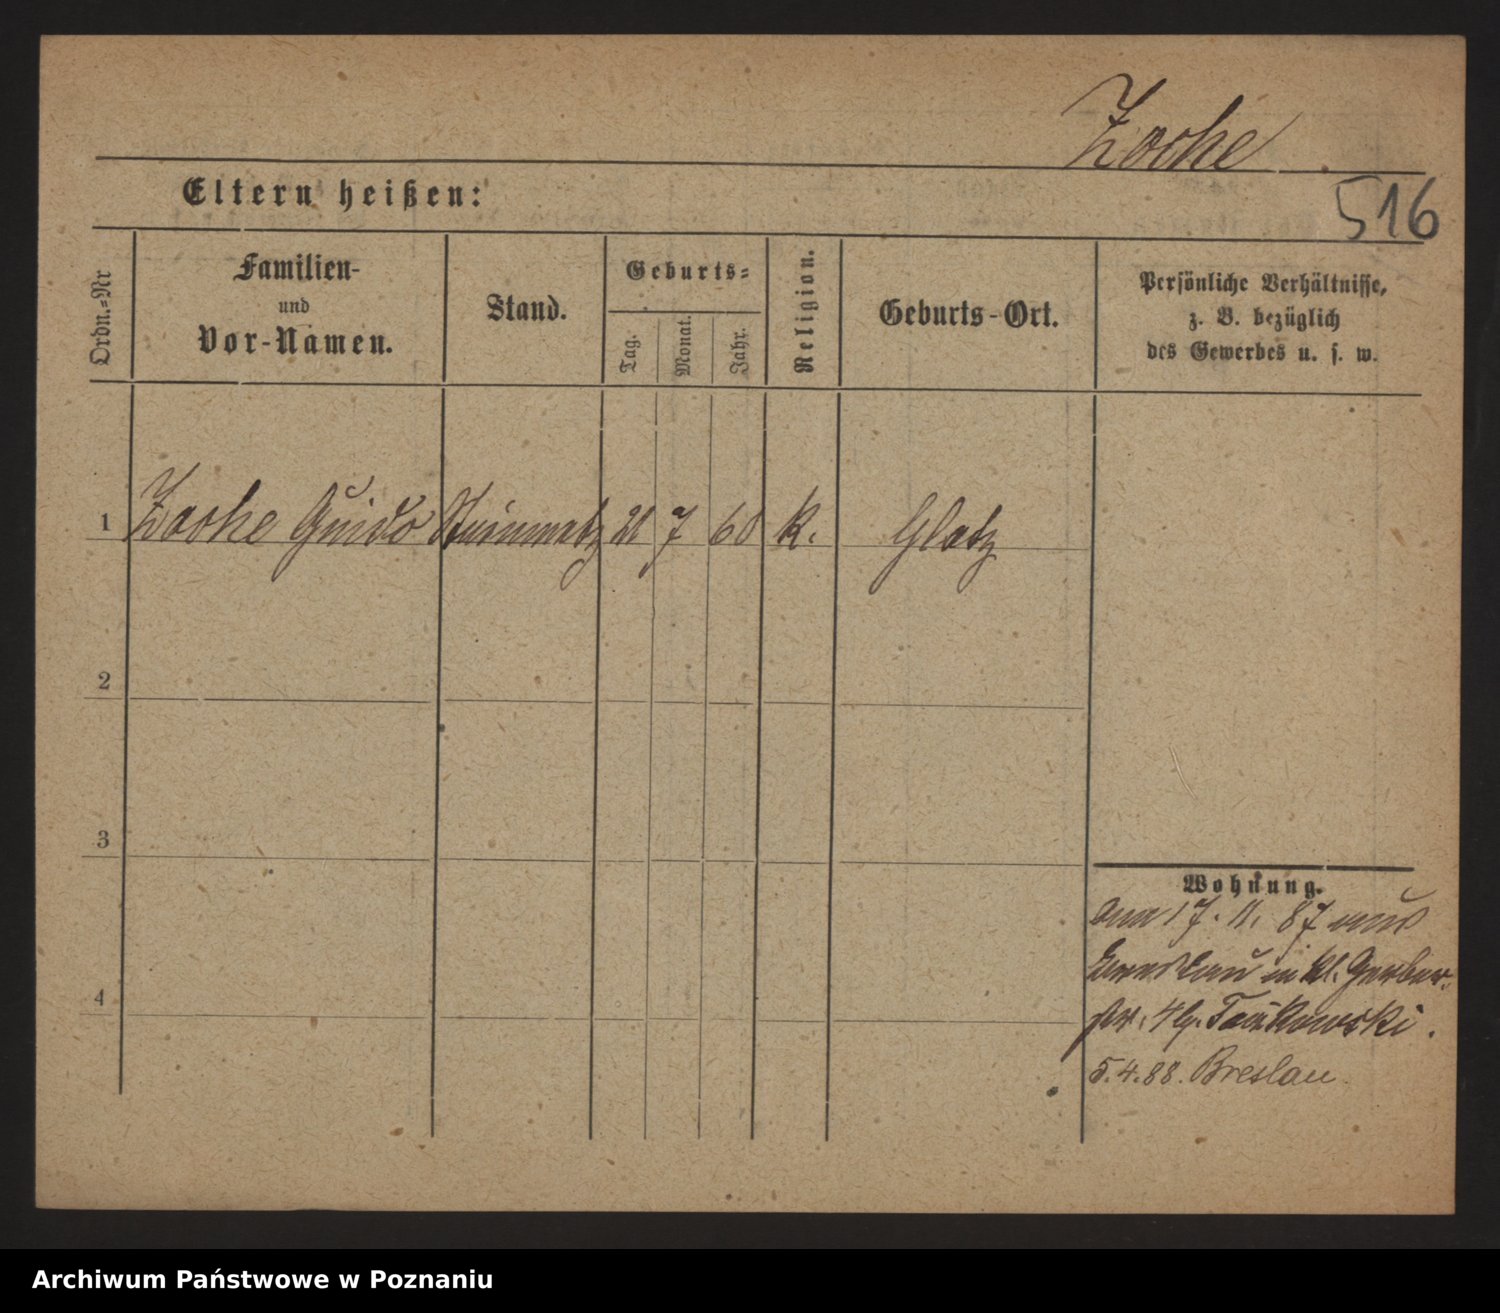 Zoche
516
Eltern heißen:
Ordn.=Nr
Familien-
und
Vor-Namen.
Stand.
Geburts=
Tag.
Monat.
Jahr.
Religion.
Geburts-Ort.
Persönliche Verhältnisse,
z. B. bezüglich
des Gewerbes u. s. w.
1 Zoche Guido Steinmetz 21 7 60 K. Glatz
2
3
4
Wohnung.
am 17. 11. 87 aus
Breslau in kl. Gerber
str. 4
5. 4. 88. Breslau
Archiwum Państwowe w Poznaniu